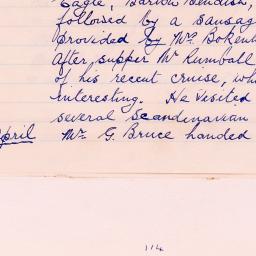 Eagle, Barton Bendish,
followed by a sausag
provided by Mrs Bokenh
After supper Mr Rumball
of his recent cruise, wh
interesting. He visited
several Scandinavian
April Mr G. Bruce handed
114